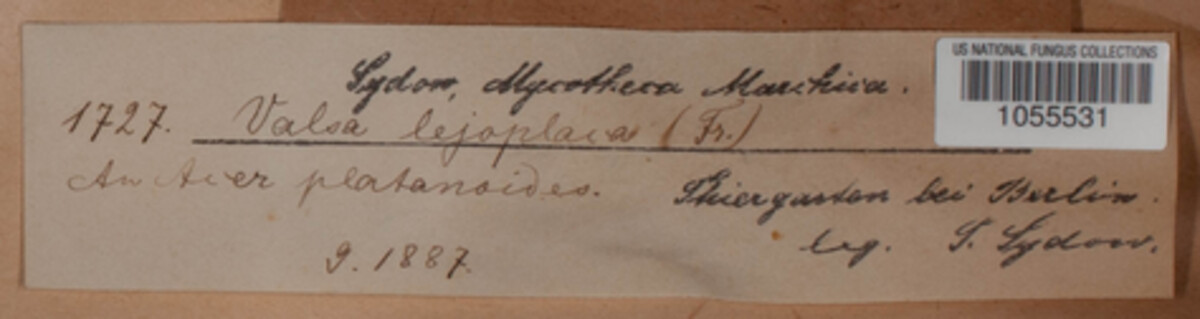 Sydow, Mycotheca Marchica.
US NATIONAL FUNGUS COLLECTIONS
1055531
1727. Valsa lejoplaca (Fr.)
An Acer platanoides. Thiergarten bei Berlin.
9. 1887. leg. P. Sydow.